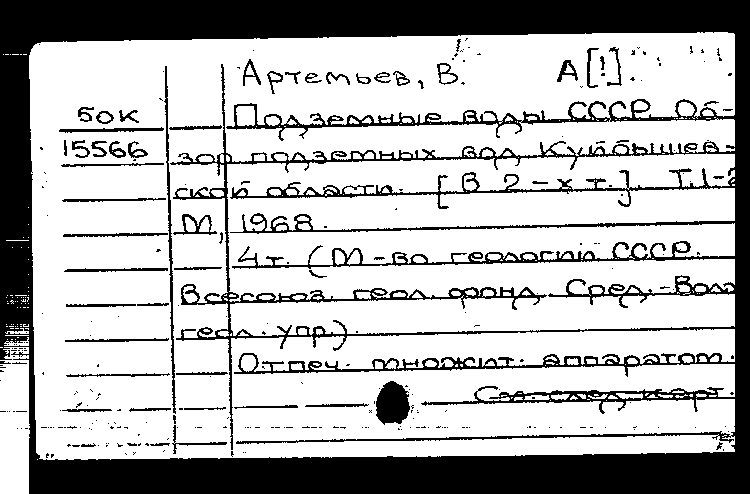 Артемьев, В. А[!].
БОК Подземные воды СССР. Об-
15566 зор подземных вод Куйбышев-
ской области. [В 2-х т.]. Т.1-2
М., 1968.
4т. (М-во геологии СССР.
Всесоюз. геол. фонд. Сред.-Волж
геол. упр.)
Отпеч. множит. аппаратом.
См. след. карт.